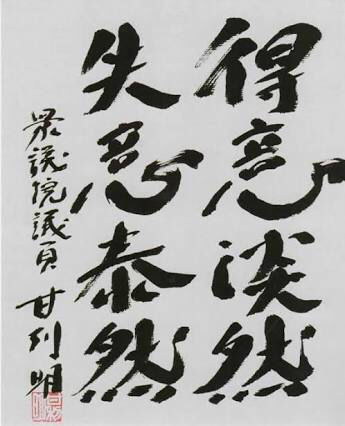 得意淡然
失意泰然
衆議院議員 甘利明